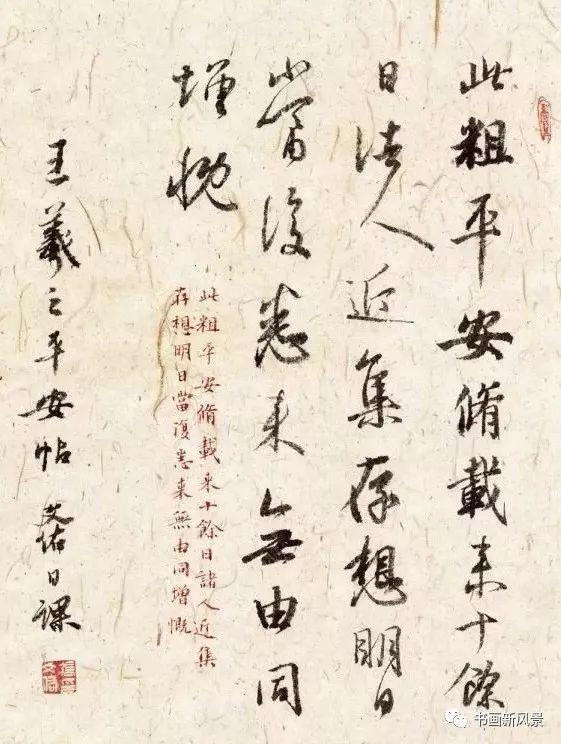 此粗平安脩載来十餘
日諸人近集存想明日
當復悉来無由同
增慨
此粗平安脩載来十餘日諸人近集
存想明日當復悉来無由同增慨
王羲之平安帖 佑日課
书画新风景